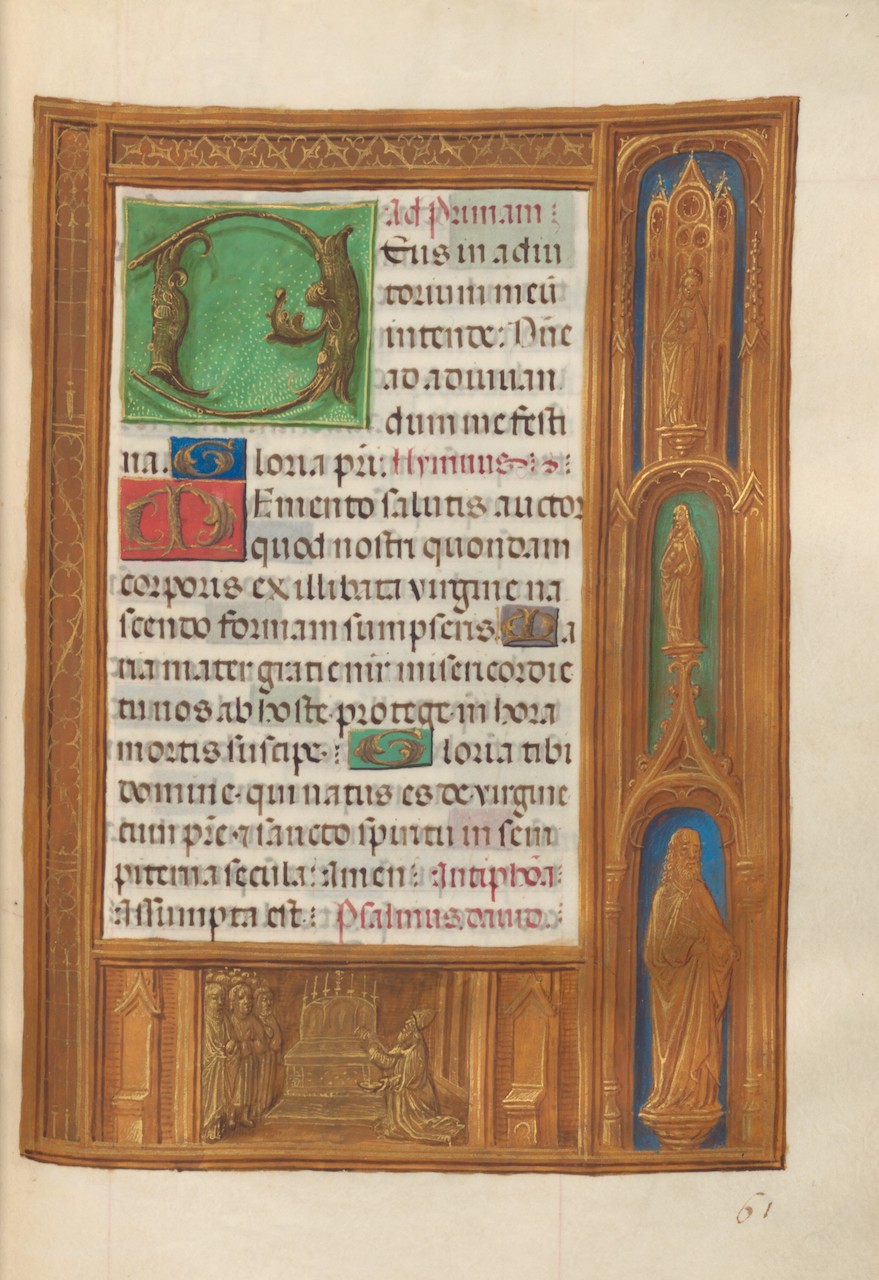 Ad Primam:
Deus in adiu
torium meũ
intende: Dñe
ad adiuuan
dum me festi
na. Gloria pri: Hymnus:
MEmento salutis auctor
quod nostri quondam
corporis ex illibata virgine na
scendo formam sumpseris. Ma
ria mater gratie mr̃ misericordie
tu nos ab hoste protege in hora
mortis suscipe: Gloria tibi
domine qui natus es de virgine
cum pr̃e ⁊ sancto spiritu in sem
piterna secula: Amen: Antiphõa:
Assumpta est: Psalmus dauid.
61